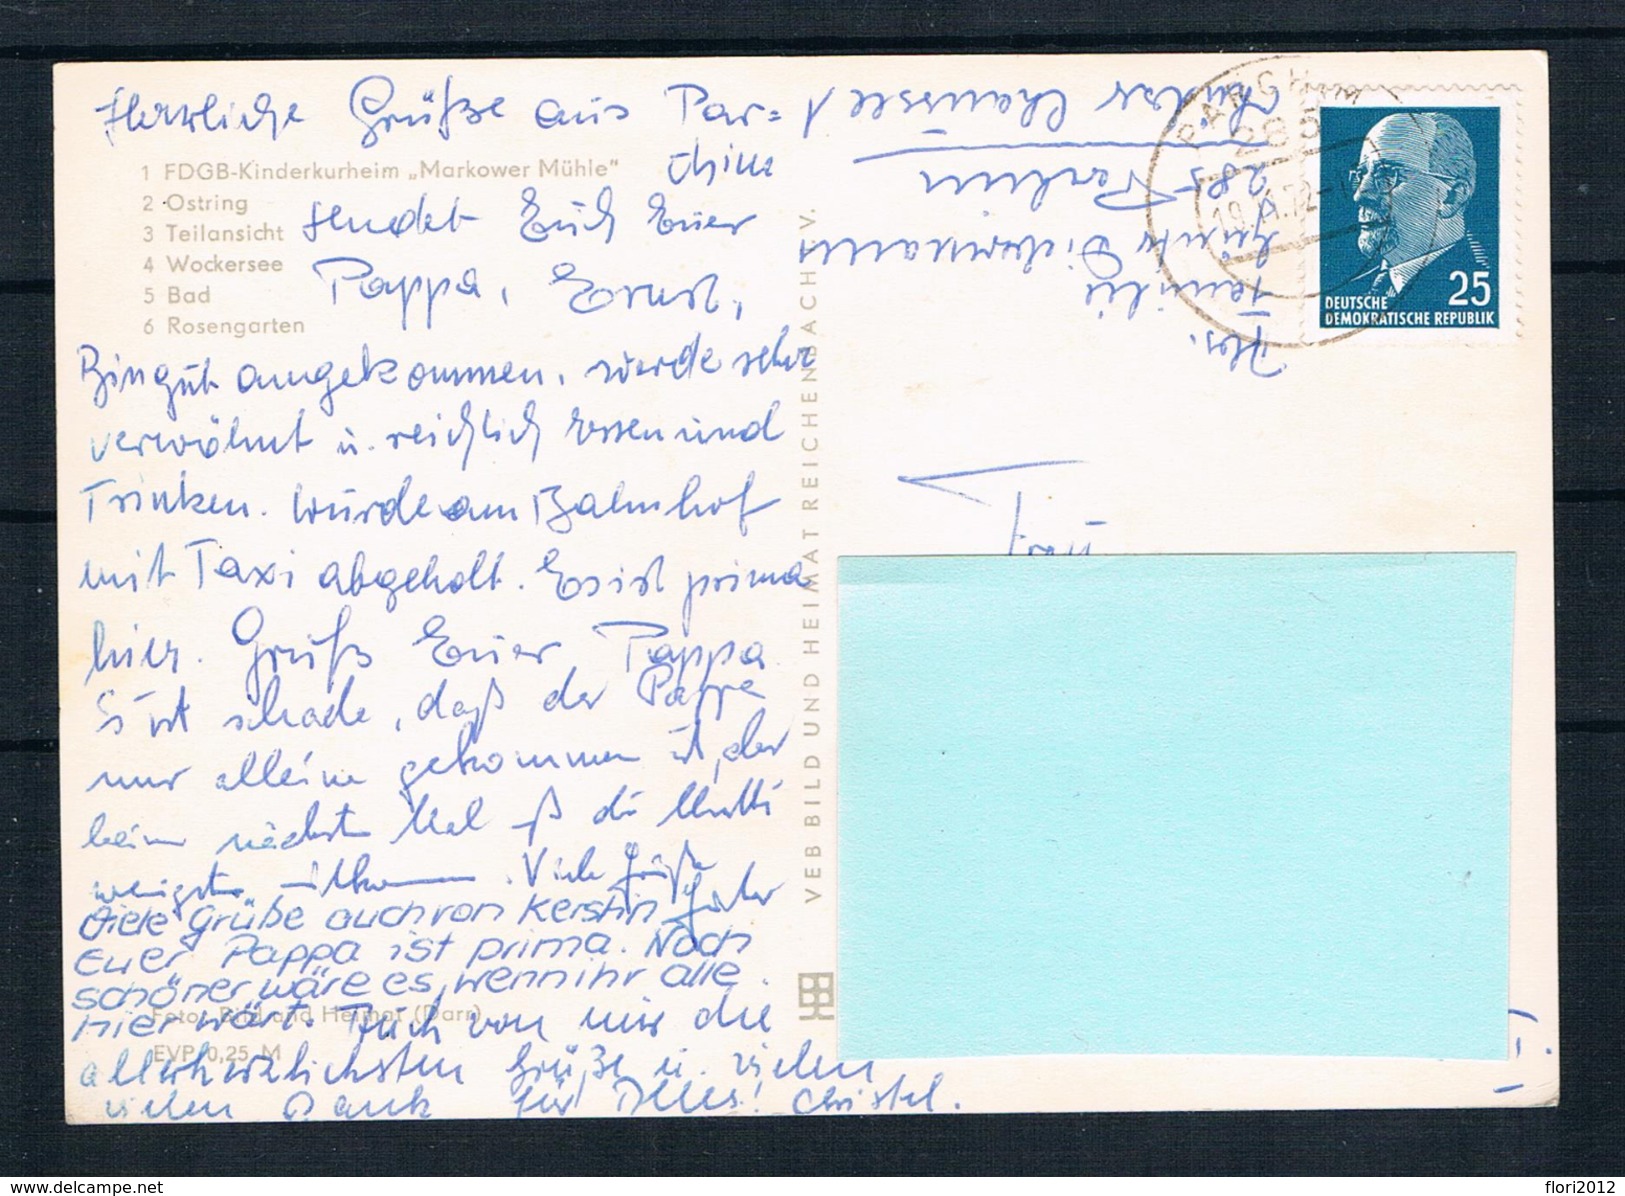 Herzliche Grüße aus Par=
chim
1 FDGB-Kinderkurheim „Markower Mühle"
2 Ostring
3 Teilansicht
4 Wockersee
5 Bad
6 Rosengarten
sendet Euch Euer
Pappa, Ernst,
Bin gut angekommen, werde sehr
verwöhnt u. reichlich Essen und
Trinken. Wurde am Bahnhof
mit Taxi abgeholt. Es ist prima
hier. Gruß Euer Pappa
Es ist schade, daß der Pappa
nur alleine gekommen ist, aber
beim nächsten Mal muß die Mutti
wenigstens mitkommen. Viele Grüße
Viele Grüße auch von Kerstin
Euer Pappa ist prima. Noch
schöner wäre es, wenn ihr alle
hier wärt. Auch von mir die
allerherzlichsten Grüße u. vielen
vielen Dank für Alles! Christel.
Foto: Bild und Heimat (Darr)
EVP 0,25 M
VEB BILD UND HEIMAT REICHENBACH V.
Abs.
Familie
Dickermann
285 Parchim
Chaussee
PARCHIM
285
DEUTSCHE
DEMOKRATISCHE REPUBLIK
25
Frau
picclick.com
flori2012